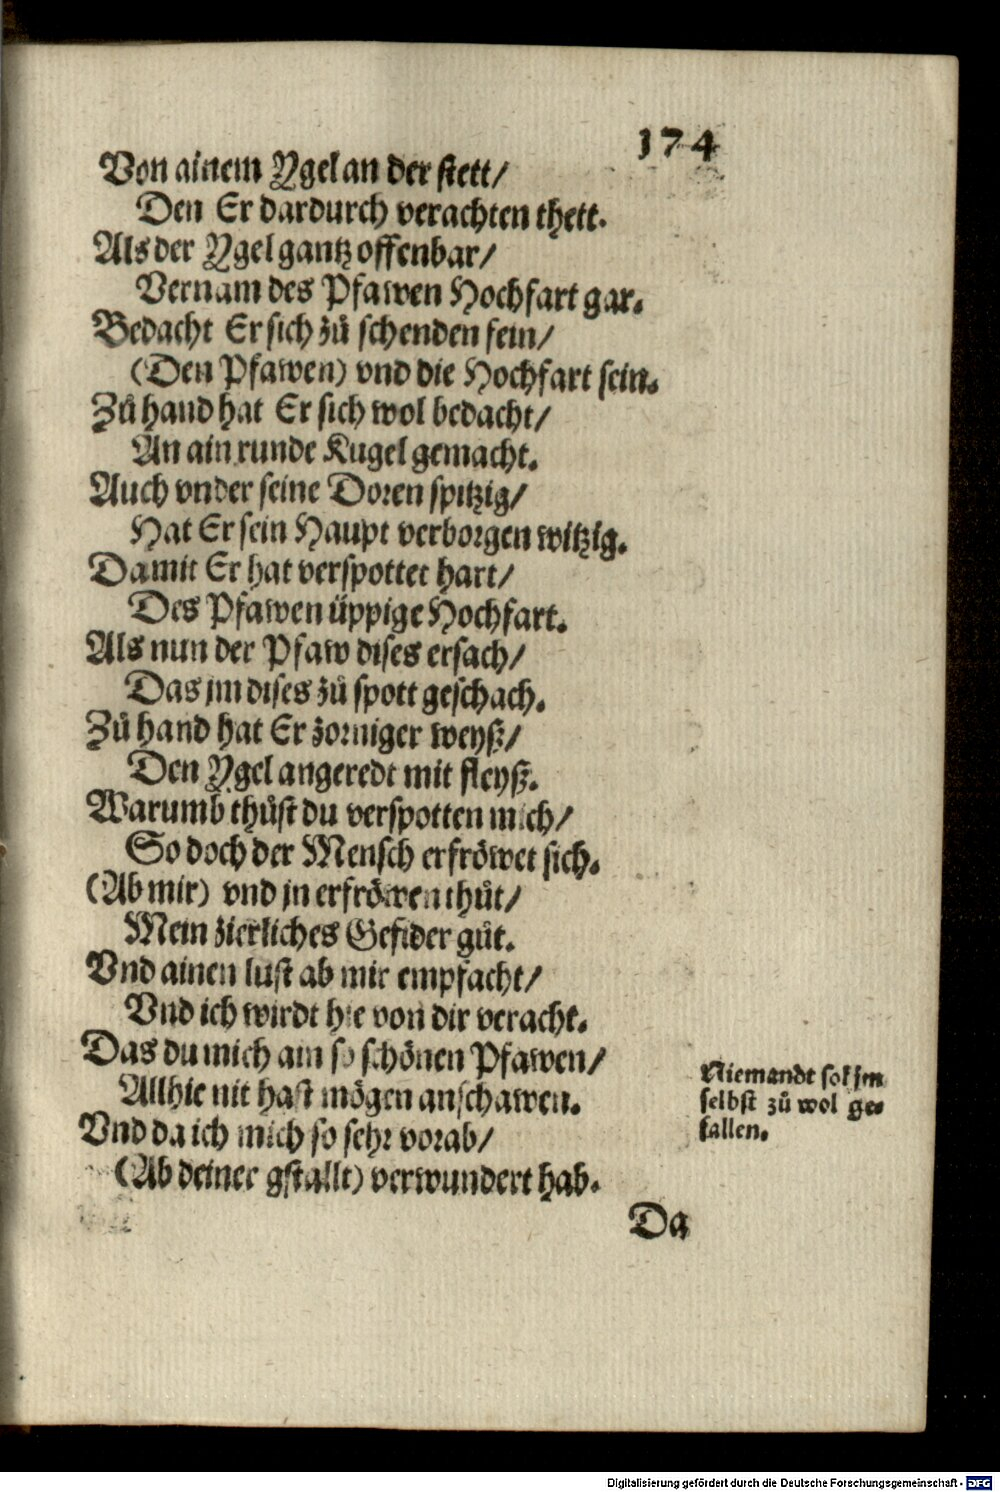 174
Von ainem Ygel an der stett/
Den Er dardurch verachten thett.
Als der Ygel gantz offenbar/
Vernam des Pfawen Hochfart gar.
Bedacht Er sich zů schenden fein/
(Den Pfawen) vnd die Hochfart sein.
Zů hand hat Er sich wol bedacht/
An ain runde Kugel gemacht.
Auch vnder seine Doren spitzig/
Hat Er sein Haupt verborgen witzig.
Damit Er hat verspottet hart/
Des Pfawen üppige Hochfart.
Als nun der Pfaw dises ersach/
Das jm dises zů spott geschach.
Zů hand hat Er zorniger weyß/
Den Ygel angeredt mit fleyß.
Warumb thůst du verspotten mich/
So doch der Mensch erfröwet sich.
(Ab mir) vnd jn erfröwen thůt/
Mein zierliches Gefider gůt.
Vnd ainen lust ab mir empfacht/
Vnd ich wirdt hie von dir veracht.
Das du mich am so schönen Pfawen/
Allhie nit hast mögen anschawen.
Vnd da ich mich so sehr vorab/
(Ab deiner gstallt) verwundert hab.
Niemandt sol jm
selbst zů wol ge-
fallen.
Da
Digitalisierung gefördert durch die Deutsche Forschungsgemeinschaft - DFG